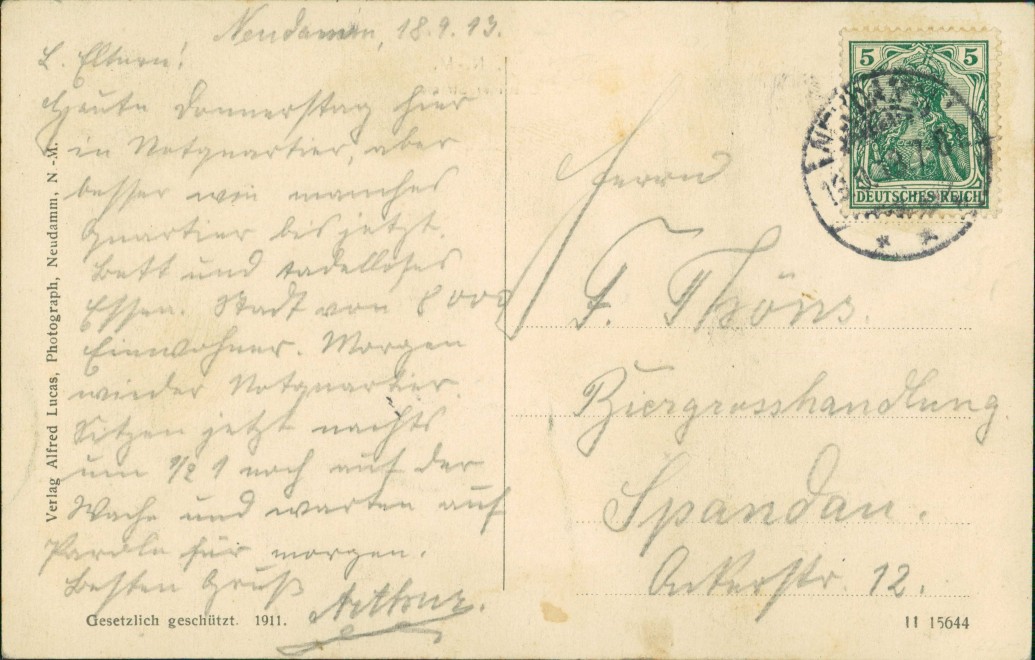 Neudamm, 18.9.13.
L. Eltern!
Heute Donnerstag hier
in Notquartier, aber
besser wie manches
Quartier bis jetzt.
Bett und tadelloses
Essen. Stadt von 8000
Einwohner. Morgen
wieder Notquartier.
Sitzen jetzt nachts
um 1/2 1 noch auf der
Wache und warten auf
Parole für morgen.
Besten Gruß
Arthur.
Verlag Alfred Lucas, Photograph, Neudamm, N.-M.
Gesetzlich geschützt. 1911.
5 5
DEUTSCHES REICH
Herrn
F. Thöns.
Biergrosshandlung.
Spandau.
Ackerstr. 12.
II 15644